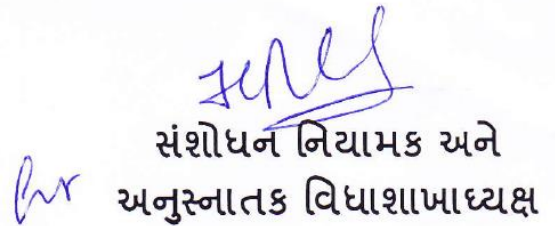 સંશોધન નિયામક અને
અનુસ્નાતક વિધાશાખાધ્યક્ષ